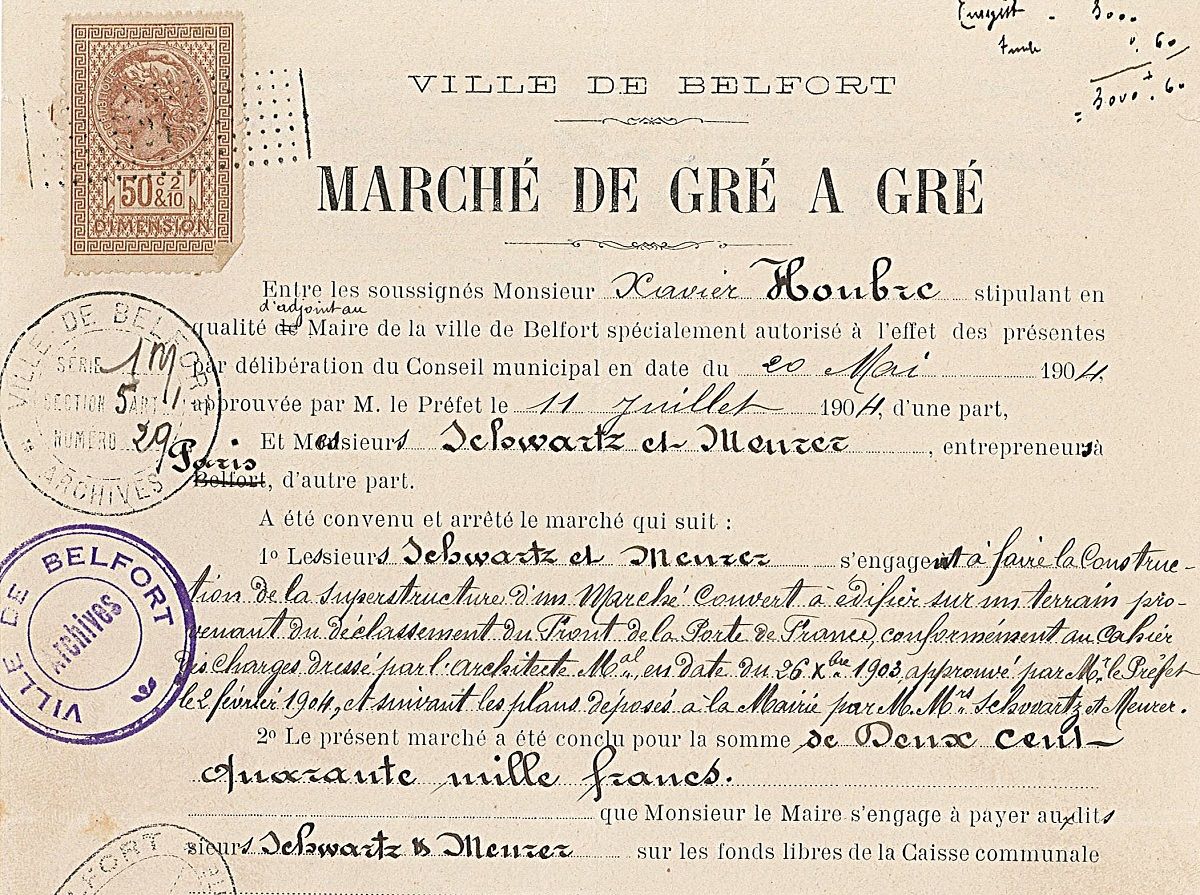 Enregist. 3000
Timb. 0.60
= 3000.60
50 c 2 & 10
DIMENSION
VILLE DE BELFORT
MARCHÉ DE GRÉ A GRÉ
Entre les soussignés Monsieur Xavier Houbre stipulant en
d'adjoint au
qualité de Maire de la ville de Belfort spécialement autorisé à l'effet des présentes
par délibération du Conseil municipal en date du 20 Mai 1904,
approuvée par M. le Préfet le 11 Juillet 1904, d'une part,
Et Messieurs Schwartz et Meurer, entrepreneurs à
Paris
Belfort, d'autre part.
VILLE DE BELFORT
SÉRIE 1M
SECTION 5 ART. 1
NUMÉRO 29
ARCHIVES
A été convenu et arrêté le marché qui suit :
1º Les sieurs Schwartz et Meurer s'engagent à faire la Construc-
tion de la superstructure d'un Marché Couvert à édifier sur un terrain pro-
venant du déclassement du Front de la Porte de France, conformément au Cahier
des Charges dressé par l'architecte Mal, en date du 26 Xbre 1903 approuvé par Mr. le Préfet
le 2 février 1904, et suivant les plans déposés à la Mairie par M.Mrs Schwartz et Meurer.
VILLE DE BELFORT
Archives
2º Le présent marché a été conclu pour la somme de Deux cent
quarante mille francs.
que Monsieur le Maire s'engage à payer aux dits
sieurs Schwartz & Meurer sur les fonds libres de la Caisse communale